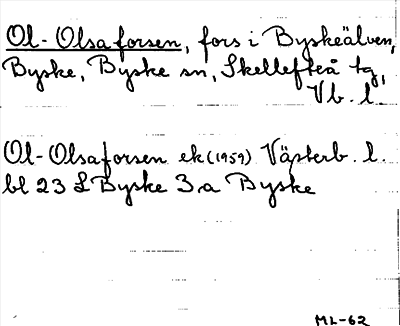 Ol-Olsaforsen, fors i Byskeälven,
Byske, Byske sn, Skellefteå tg,
Vb. l.
Ol-Olsaforsen ek (1959) Västerb. l.
bl 23 L Byske 3a Byske
ML-62